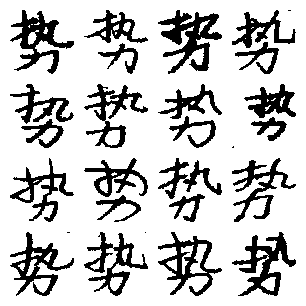 势势势势
势势势势
势势势势
势势势势